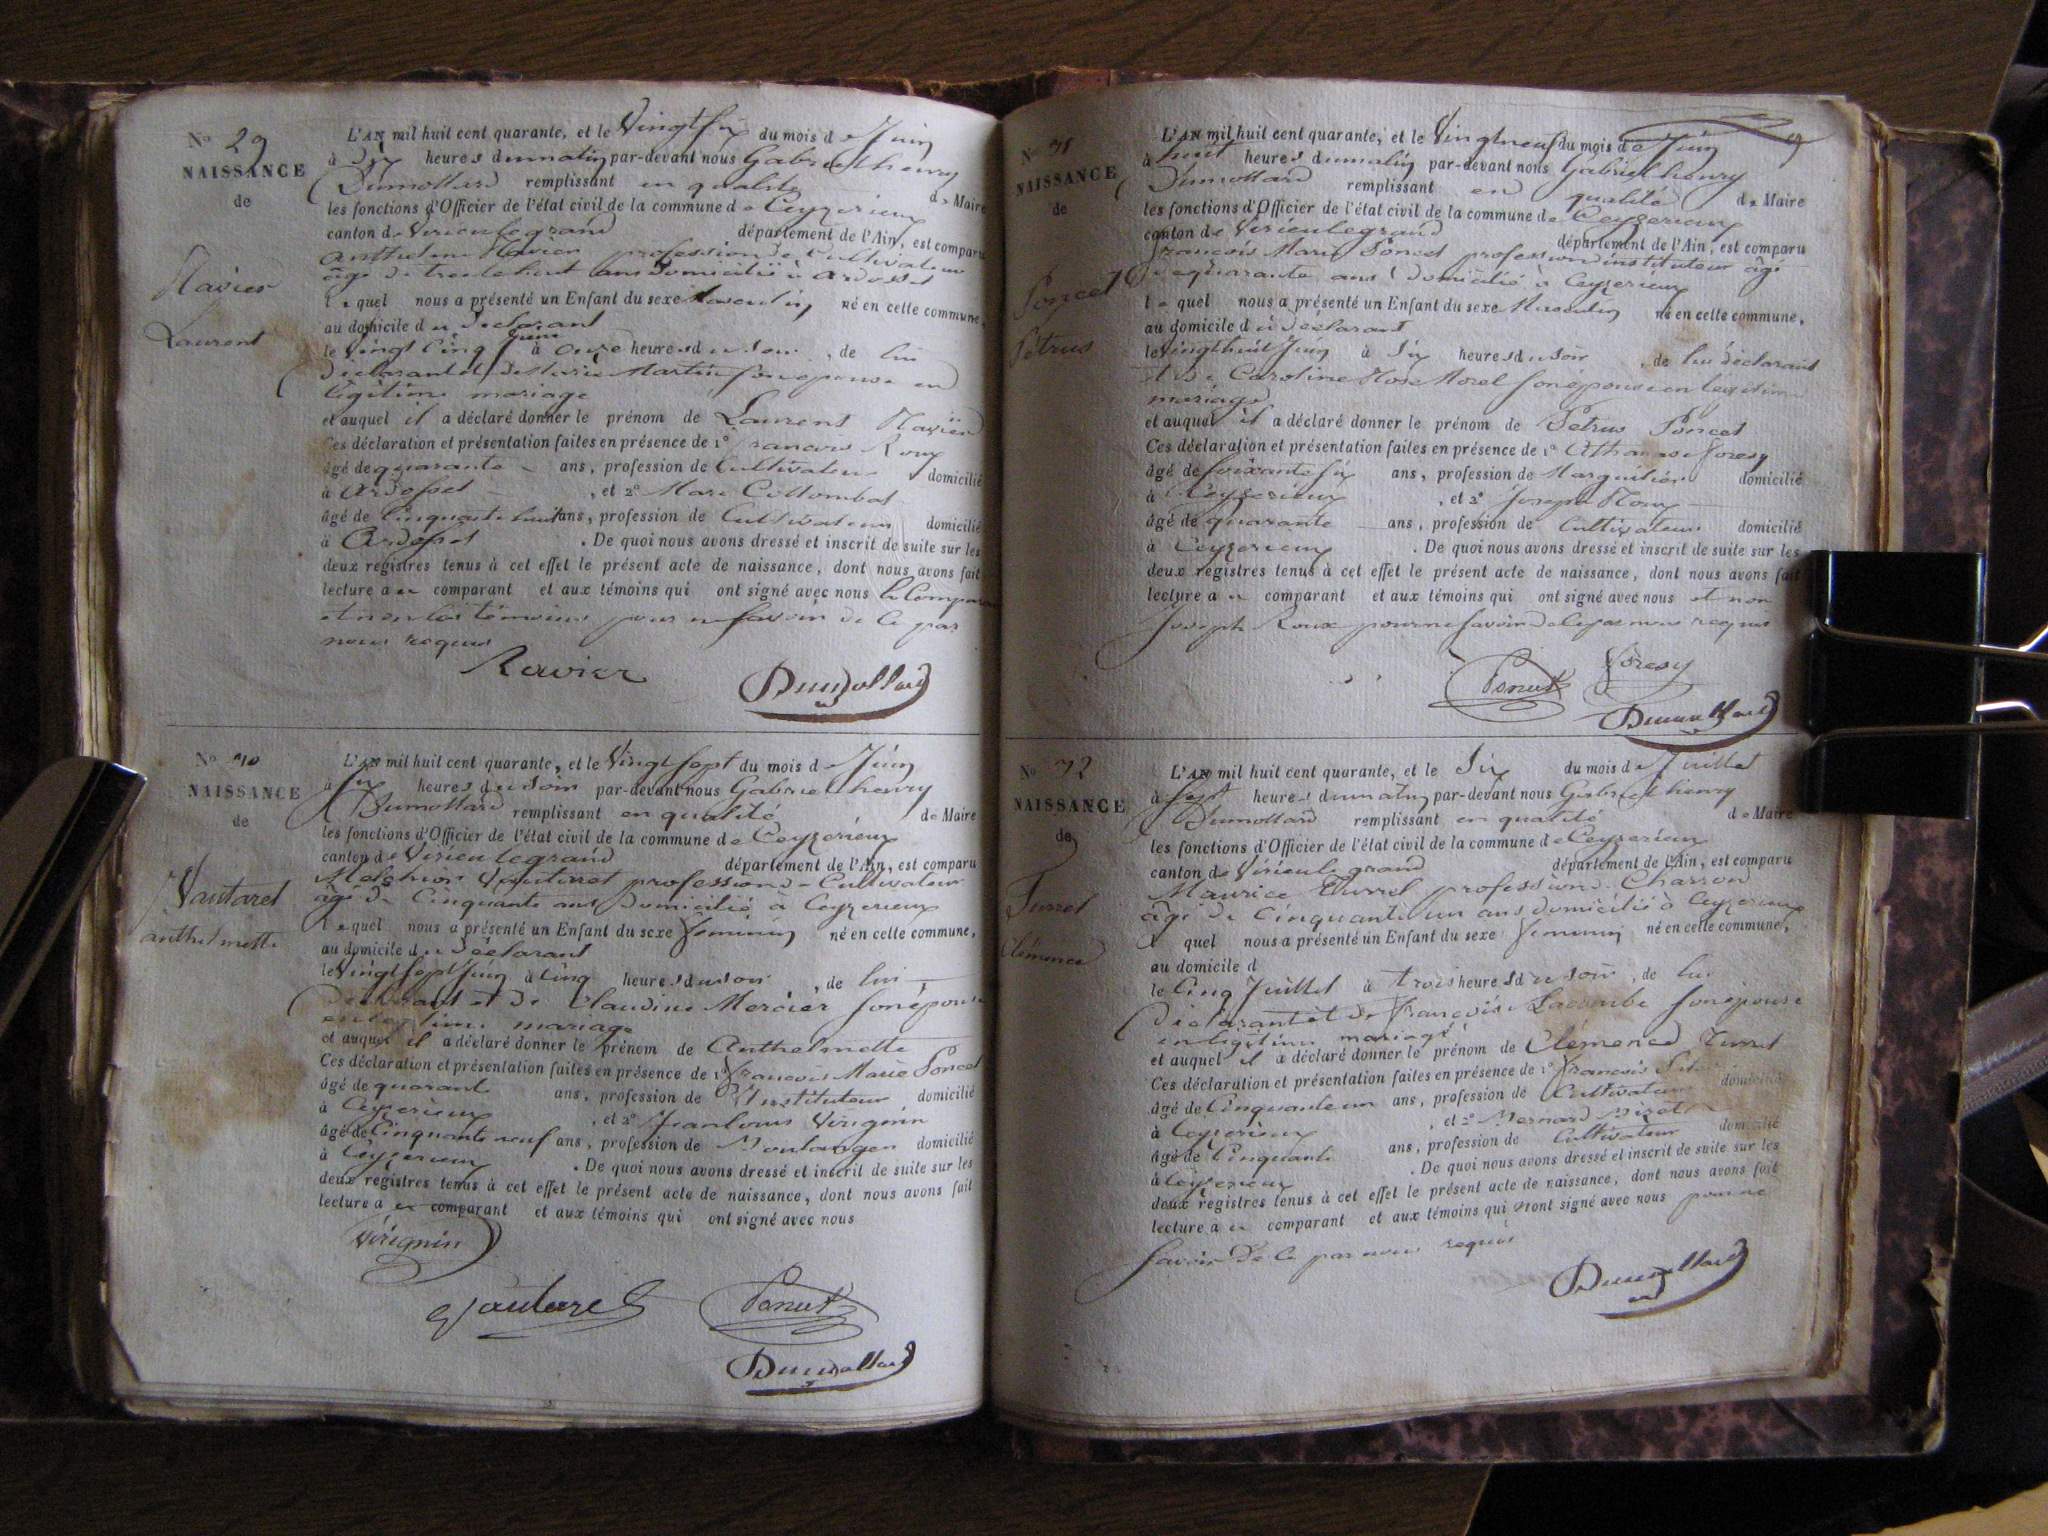 N° 29
NAISSANCE
de
Ravier
Laurent
L'AN mil huit cent quarante, et le Vingt six du mois de Juin
à dix heures du matin par-devant nous Gabriel henry
Dumollard remplissant en qualité de Maire
les fonctions d'Officier de l'état civil de la commune de Ceyzerieux
canton de Virieulegrand département de l'Ain, est comparu
Anthelme Ravier profession de Cultivateur
âgé de trente huit ans domicilié à Ardosset
lequel nous a présenté un Enfant du sexe Masculin né en cette commune,
au domicile du déclarant
le Vingt Cinq Juin à onze heures du soir, de lui
déclarant et de Marie Martin son épouse en
légitime mariage
et auquel il a déclaré donner le prénom de Laurent Ravier
Ces déclaration et présentation faites en présence de 1° francois Roux
âgé de quarante ans, profession de Cultivateur domicilié
à Ardosset, et 2° Marc Collombat
âgé de Cinquante huit ans, profession de Cultivateur domicilié
à Ardosset. De quoi nous avons dressé et inscrit de suite sur les
deux registres tenus à cet effet le présent acte de naissance, dont nous avons fait
lecture au comparant et aux témoins qui ont signé avec nous le Comparant
et non les témoins pour ne savoir de ce par
nous requis
Ravier Dumollard
N° 30
NAISSANCE
de
Vautaret
anthelmette
L'AN mil huit cent quarante, et le Vingt sept du mois de Juin
à six heures du soir par-devant nous Gabriel henry
Dumollard remplissant en qualité de Maire
les fonctions d'Officier de l'état civil de la commune de Ceyzerieux
canton de Virieulegrand département de l'Ain, est comparu
Melchior Vauterret profession de Cultivateur
âgé de Cinquante ans domicilié à Ceyzerieux
lequel nous a présenté un Enfant du sexe féminin né en cette commune,
au domicile du déclarant
le Vingt sept Juin à Cinq heures du soir, de lui
déclarant et de Claudine Mercier son épouse
en légitime mariage
et auquel il a déclaré donner le prénom de Anthelmette
Ces déclaration et présentation faites en présence de 1° francois Marie Poncet
âgé de quarante ans, profession de Instituteur domicilié
à Ceyzerieux, et 2° Jean louis Virignin
âgé de Cinquante neuf ans, profession de Boulanger domicilié
à Ceyzerieux. De quoi nous avons dressé et inscrit de suite sur les
deux registres tenus à cet effet le présent acte de naissance, dont nous avons fait
lecture au comparant et aux témoins qui ont signé avec nous
Virignin
Vautaret Poncet
Dumollard
N° 31
NAISSANCE
de
Poncet
Pétrus
L'AN mil huit cent quarante, et le Vingt neuf du mois de Juin
à huit heures du matin par-devant nous Gabriel henry
Dumollard remplissant en qualité de Maire
les fonctions d'Officier de l'état civil de la commune de Ceyzerieux
canton de Virieulegrand département de l'Ain, est comparu
francois Marie Poncet profession d'instituteur âgé
de quarante ans domicilié à Ceyzerieux
lequel nous a présenté un Enfant du sexe Masculin né en cette commune,
au domicile du déclarant
le Vingt huit Juin à Six heures du soir, de lui déclarant
et de Caroline Rose Morel son épouse en légitime
mariage
et auquel il a déclaré donner le prénom de Pétrus Poncet
Ces déclaration et présentation faites en présence de 1° Athanase foresy
âgé de soixante six ans, profession de Marguillier domicilié
à Ceyzerieux, et 2° Joseph Roux
âgé de quarante ans, profession de Cultivateur domicilié
à Ceyzerieux. De quoi nous avons dressé et inscrit de suite sur les
deux registres tenus à cet effet le présent acte de naissance, dont nous avons fait
lecture au comparant et aux témoins qui ont signé avec nous et non
Joseph Roux pour ne savoir de ce par nous requis
Poncet foresy
Dumollard
N° 32
NAISSANCE
de
Turrel
Clémence
L'AN mil huit cent quarante, et le Six du mois de Juillet
à sept heures du matin par-devant nous Gabriel henry
Dumollard remplissant en qualité de Maire
les fonctions d'Officier de l'état civil de la commune de Ceyzerieux
canton de Virieulegrand département de l'Ain, est comparu
Maurice Turrel profession de Charron
âgé de Cinquante un ans domicilié à Ceyzerieux
le quel nous a présenté un Enfant du sexe féminin né en cette commune,
au domicile d
le Cinq Juillet à trois heures du soir, de lui
déclarant et de françoise Lacombe son épouse
en légitime mariage
et auquel il a déclaré donner le prénom de Clémence Turrel
Ces déclaration et présentation faites en présence de 1° francois
âgé de Cinquante un ans, profession de Cultivateur domicilié
à Ceyzerieux, et 2° Bernard
âgé de Cinquante ans, profession de Cultivateur domicilié
à Ceyzerieux. De quoi nous avons dressé et inscrit de suite sur les
deux registres tenus à cet effet le présent acte de naissance, dont nous avons fait
lecture au comparant et aux témoins qui n'ont signé avec nous pour ne
savoir de ce par nous requis
Dumollard